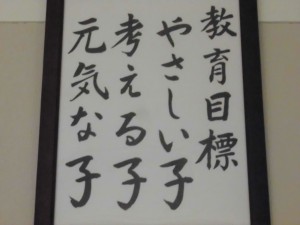 教育目標
やさしい子
考える子
元気な子